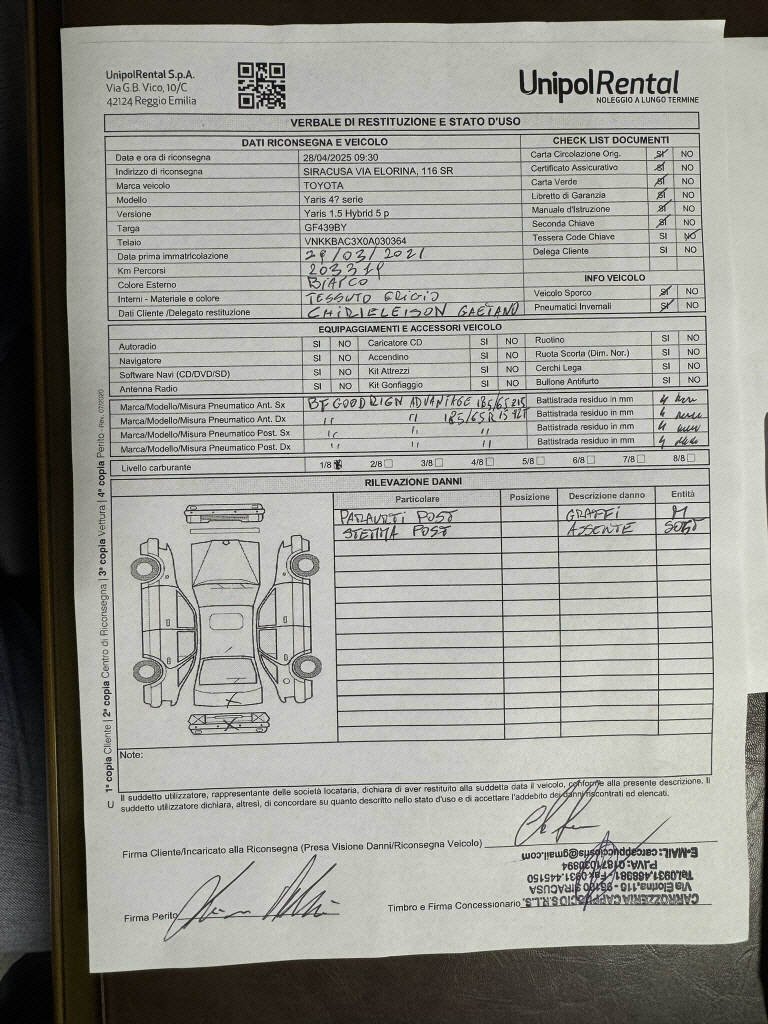 UnipolRental S.p.A.
Via G.B. Vico, 10/C
42124 Reggio Emilia
UnipolRental
NOLEGGIO A LUNGO TERMINE
VERBALE DI RESTITUZIONE E STATO D'USO
DATI RICONSEGNA E VEICOLO
Data e ora di riconsegna 28/04/2025 09:30
Indirizzo di riconsegna SIRACUSA VIA ELORINA, 116 SR
Marca veicolo TOYOTA
Modello Yaris 4? serie
Versione Yaris 1.5 Hybrid 5 p
Targa GF439BY
Telaio VNKKBAC3X0A030364
Data prima immatricolazione 29/03/2021
Km Percorsi 203319
Colore Esterno BIANCO
Interni - Materiale e colore TESSUTO GRIGIO
Dati Cliente /Delegato restituzione CHIRIELEISON GAETANO
CHECK LIST DOCUMENTI
Carta Circolazione Orig. SI NO
Certificato Assicurativo SI NO
Carta Verde SI NO
Libretto di Garanzia SI NO
Manuale d'Istruzione SI NO
Seconda Chiave SI NO
Tessera Code Chiave SI NO
Delega Cliente SI NO
INFO VEICOLO
Veicolo Sporco SI NO
Pneumatici Invernali SI NO
EQUIPAGGIAMENTI E ACCESSORI VEICOLO
Autoradio SI NO Caricatore CD SI NO Ruotino SI NO
Navigatore SI NO Accendino SI NO Ruota Scorta (Dim. Nor.) SI NO
Software Navi (CD/DVD/SD) SI NO Kit Attrezzi SI NO Cerchi Lega SI NO
Antenna Radio SI NO Kit Gonfiaggio SI NO Bullone Antifurto SI NO
Marca/Modello/Misura Pneumatico Ant. Sx BF GOODRIGN ADVANTAGE 185/65R15 Battistrada residuo in mm 4 mm
Marca/Modello/Misura Pneumatico Ant. Dx " " 185/65R15 92T Battistrada residuo in mm 4 mm
Marca/Modello/Misura Pneumatico Post. Sx " " " Battistrada residuo in mm 4 mm
Marca/Modello/Misura Pneumatico Post. Dx " " " Battistrada residuo in mm 4 mm
Livello carburante 1/8 2/8 3/8 4/8 5/8 6/8 7/8 8/8
RILEVAZIONE DANNI
Particolare Posizione Descrizione danno Entità
PARAURTI POST GRAFFI M
STEMMA POST ASSENTE SOST
Note:
Il suddetto utilizzatore, rappresentante delle società locataria, dichiara di aver restituito alla suddetta data il veicolo, conforme alla presente descrizione. Il
suddetto utilizzatore dichiara, altresì, di concordare su quanto descritto nello stato d'uso e di accettare l'addebito dei danni riscontrati ed elencati.
Firma Cliente/Incaricato alla Riconsegna (Presa Visione Danni/Riconsegna Veicolo)
Firma Perito
Timbro e Firma Concessionario
CARROZZERIA CAPPUCCIO S.R.L.S.
Via Elorina, 116 - 96100 SIRACUSA
Tel.0931.468981 - Fax 0931.445150
P.IVA: 01871030894
E-MAIL: carcappucciosrls@gmail.com
1ª copia Cliente | 2ª copia Centro di Riconsegna | 3ª copia Vettura | 4ª copia Perito - Rev. 07/2020
U